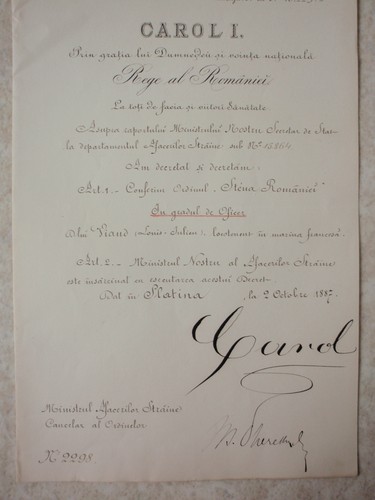 CAROL I.
Prin grația lui Dumnedeu și voința națională
Rege al României
La toți de facia și viitori sănătate
Asupra raportului Ministrului Nostru Secretar de Stat
la departamentul Afacerilor Străine sub No.
Am decretat și decretăm:
Art. 1. - Conferim Ordinul „Steua României”
In gradul de Oficer
Dlui Viand (Louis-Julien), locotenent în marina francesă.
Art. 2. - Ministrul Nostru al Afacerilor Străine
este însărcinat cu executarea acestui Decret.
Dat în Slatina la 2 Octobre 1887.
Carol
Ministrul Afacerilor Străine
Cancelar al Ordinilor
No 2298